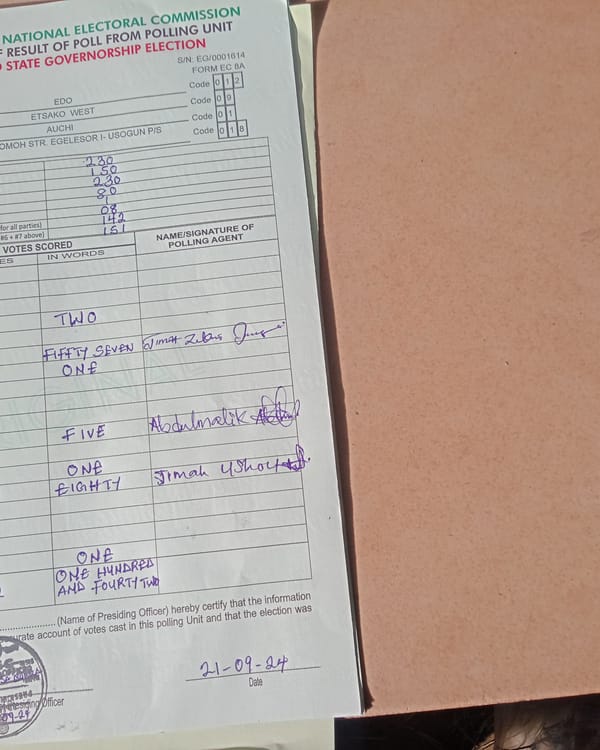 NATIONAL ELECTORAL COMMISSION
RESULT OF POLL FROM POLLING UNIT
STATE GOVERNORSHIP ELECTION
S/N: EG/0001614
FORM EC 8A
EDO Code 0 1 2
ETSAKO WEST Code 0 9
AUCHI Code 0 1
OMOH STR. EGELESOR I- USOGUN P/S Code 0 1 8
230
150
230
80
1
08
for all parties) 142
#6 + #7 above) 151
VOTES SCORED
NAME/SIGNATURE OF
POLLING AGENT
ES IN WORDS
TWO
FIFFTY SEVEN Jimah
ONE
FIVE Abdulmalik
ONE
EIGHTY Jimah
ONE
ONE HUNDRED
AND FOURTY TWO
(Name of Presiding Officer) hereby certify that the information
urate account of votes cast in this polling Unit and that the election was
21-09-24
Date
esiding Officer